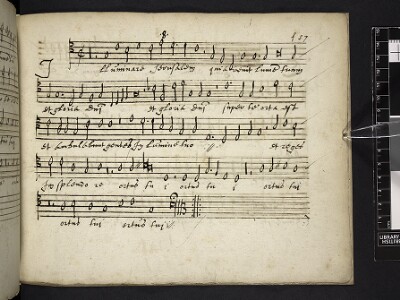 f 17
Illuminare Jerusalem quia venit lumē tuum
et gloria dni et gloria dni super te orta est
et ambulabunt gentes in lumine tuo et reges
in splendore ortus tui ortus tui ortus tui
ortus tui ortus tui
LIBRARY